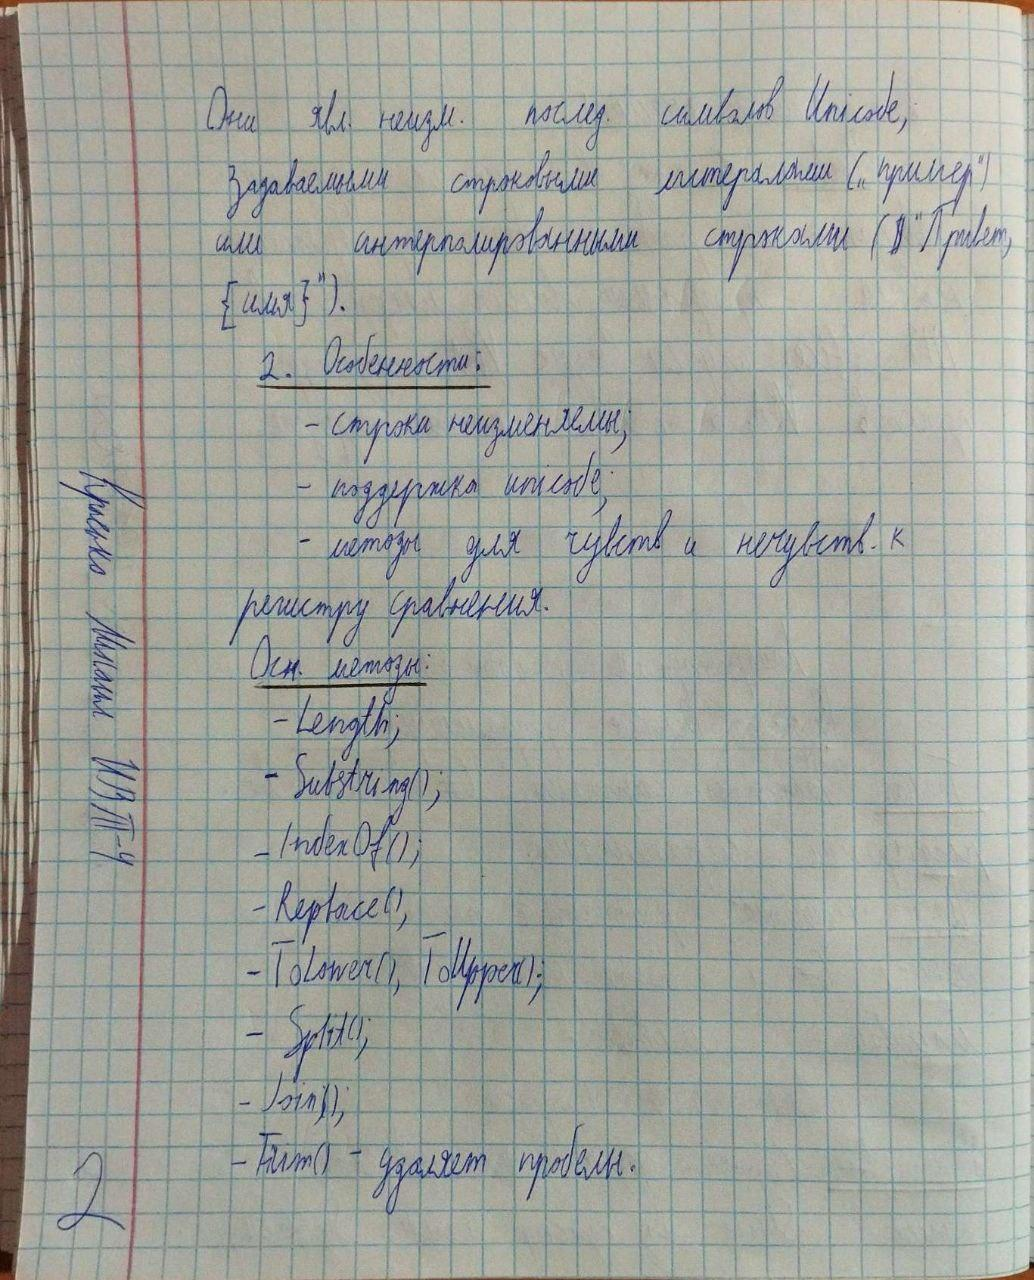 Они явл. неизм. послед. символов Unicode,
задаваемыми строковыми литералами („пример")
или интерполированными строками ($"Привет,
{имя}").
2. Особенности:
- строки неизменяемы;
- поддержка unicode;
- методы для чувств и нечувств. к
регистру сравнения.
Осн. методы:
- Length;
- Substring();
- IndexOf();
- Replace(),
- ToLower(), ToUpper();
- Split();
- Join();
- Trim() - удаляет пробелы.
2